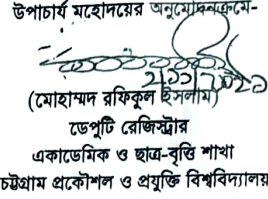 উপাচার্য মহোদয়ের অনুমোদনক্রমে-
(মোহাম্মদ রফিকুল ইসলাম)
ডেপুটি রেজিস্ট্রার
একাডেমিক ও ছাত্র-বৃত্তি শাখা
চট্টগ্রাম প্রকৌশল ও প্রযুক্তি বিশ্ববিদ্যালয়